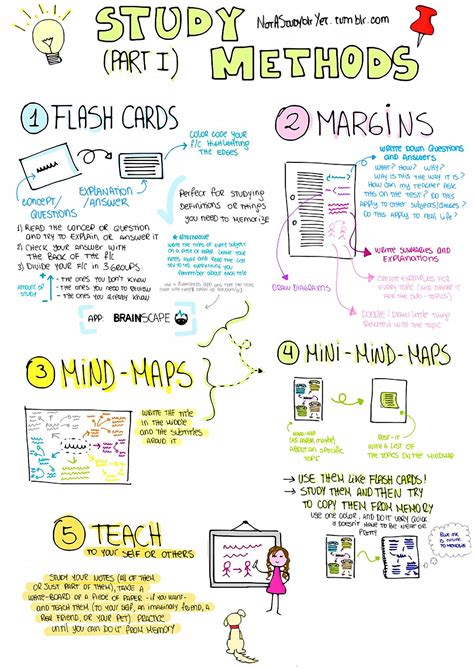 STUDY
NotAStudyblrYet.tumblr.com
(PART I)
METHODS
1 FLASH CARDS
COLOR CODE YOUR
F/C HIGHLIGHTING
THE EDGES
CONCEPT/
QUESTIONS
EXPLANATION
/ANSWER
Perfect for studying
definitions or things
you need to memorize
1) READ THE CONCEPT OR QUESTION
AND TRY TO EXPLAIN OR ANSWER IT
2) CHECK YOUR ANSWER WITH
THE BACK OF THE F/C
3) DIVIDE YOUR F/C IN 3 GROUPS:
AMOUNT OF
STUDY
- THE ONES YOU DON'T KNOW
- THE ONES YOU NEED TO REVIEW
- THE ONES YOU ALREADY KNOW
* alternative:
APP: BRAINSCAPE
2 MARGINS
WRITE DOWN QUESTIONS
AND ANSWERS
WHAT? HOW? WHY?
WHY IS THIS THE WAY IT IS?
HOW CAN MY TEACHER ASK
ON THE TEST? DO THIS
APPLY TO OTHER SUBJECTS/CLASSES? DO
THIS APPLY TO REAL LIFE?
WRITE SUMMARIES AND
EXPLANATIONS
DRAW DIAGRAMS
CREATE EXAMPLES FOR
EVERY TOPIC (AND DOWN IT
FOR THE SUB-TOPICS)
DOODLE! DRAW LITTLE THINGS
RELATED WITH THE TOPIC
3 MIND-MAPS
WRITE THE TITLE
IN THE MIDDLE
AND THE SUBTITLES
AROUND IT
4 MINI-MIND-MAPS
MIND-MAP
ABOUT AN SPECIFIC
TOPIC
POST-IT
WITH A LIST OF
THE TOPICS ON THE MINDMAP
→ USE THEM LIKE FLASH CARDS!
→ STUDY THEM AND THEN TRY
TO COPY THEM FROM MEMORY
USE ONE COLOR, AND DO IT VERY QUICK
IT DOESN'T HAVE TO BE NEAT OR
PRETTY
BLUE INK
IS EASIER
TO MEMORIZE
5 TEACH
TO YOUR SELF OR OTHERS
STUDY YOUR NOTES (ALL OF THEM
OR JUST PART OF THEM), TAKE A
WHITE-BOARD OR A PIECE OF PAPER - IF YOU WANT -
AND TEACH THEM (TO YOUR SELF, AN IMAGINARY FRIEND, A
REAL FRIEND, OR YOUR PET) PRACTICE
UNTIL YOU CAN DO IT FROM MEMORY